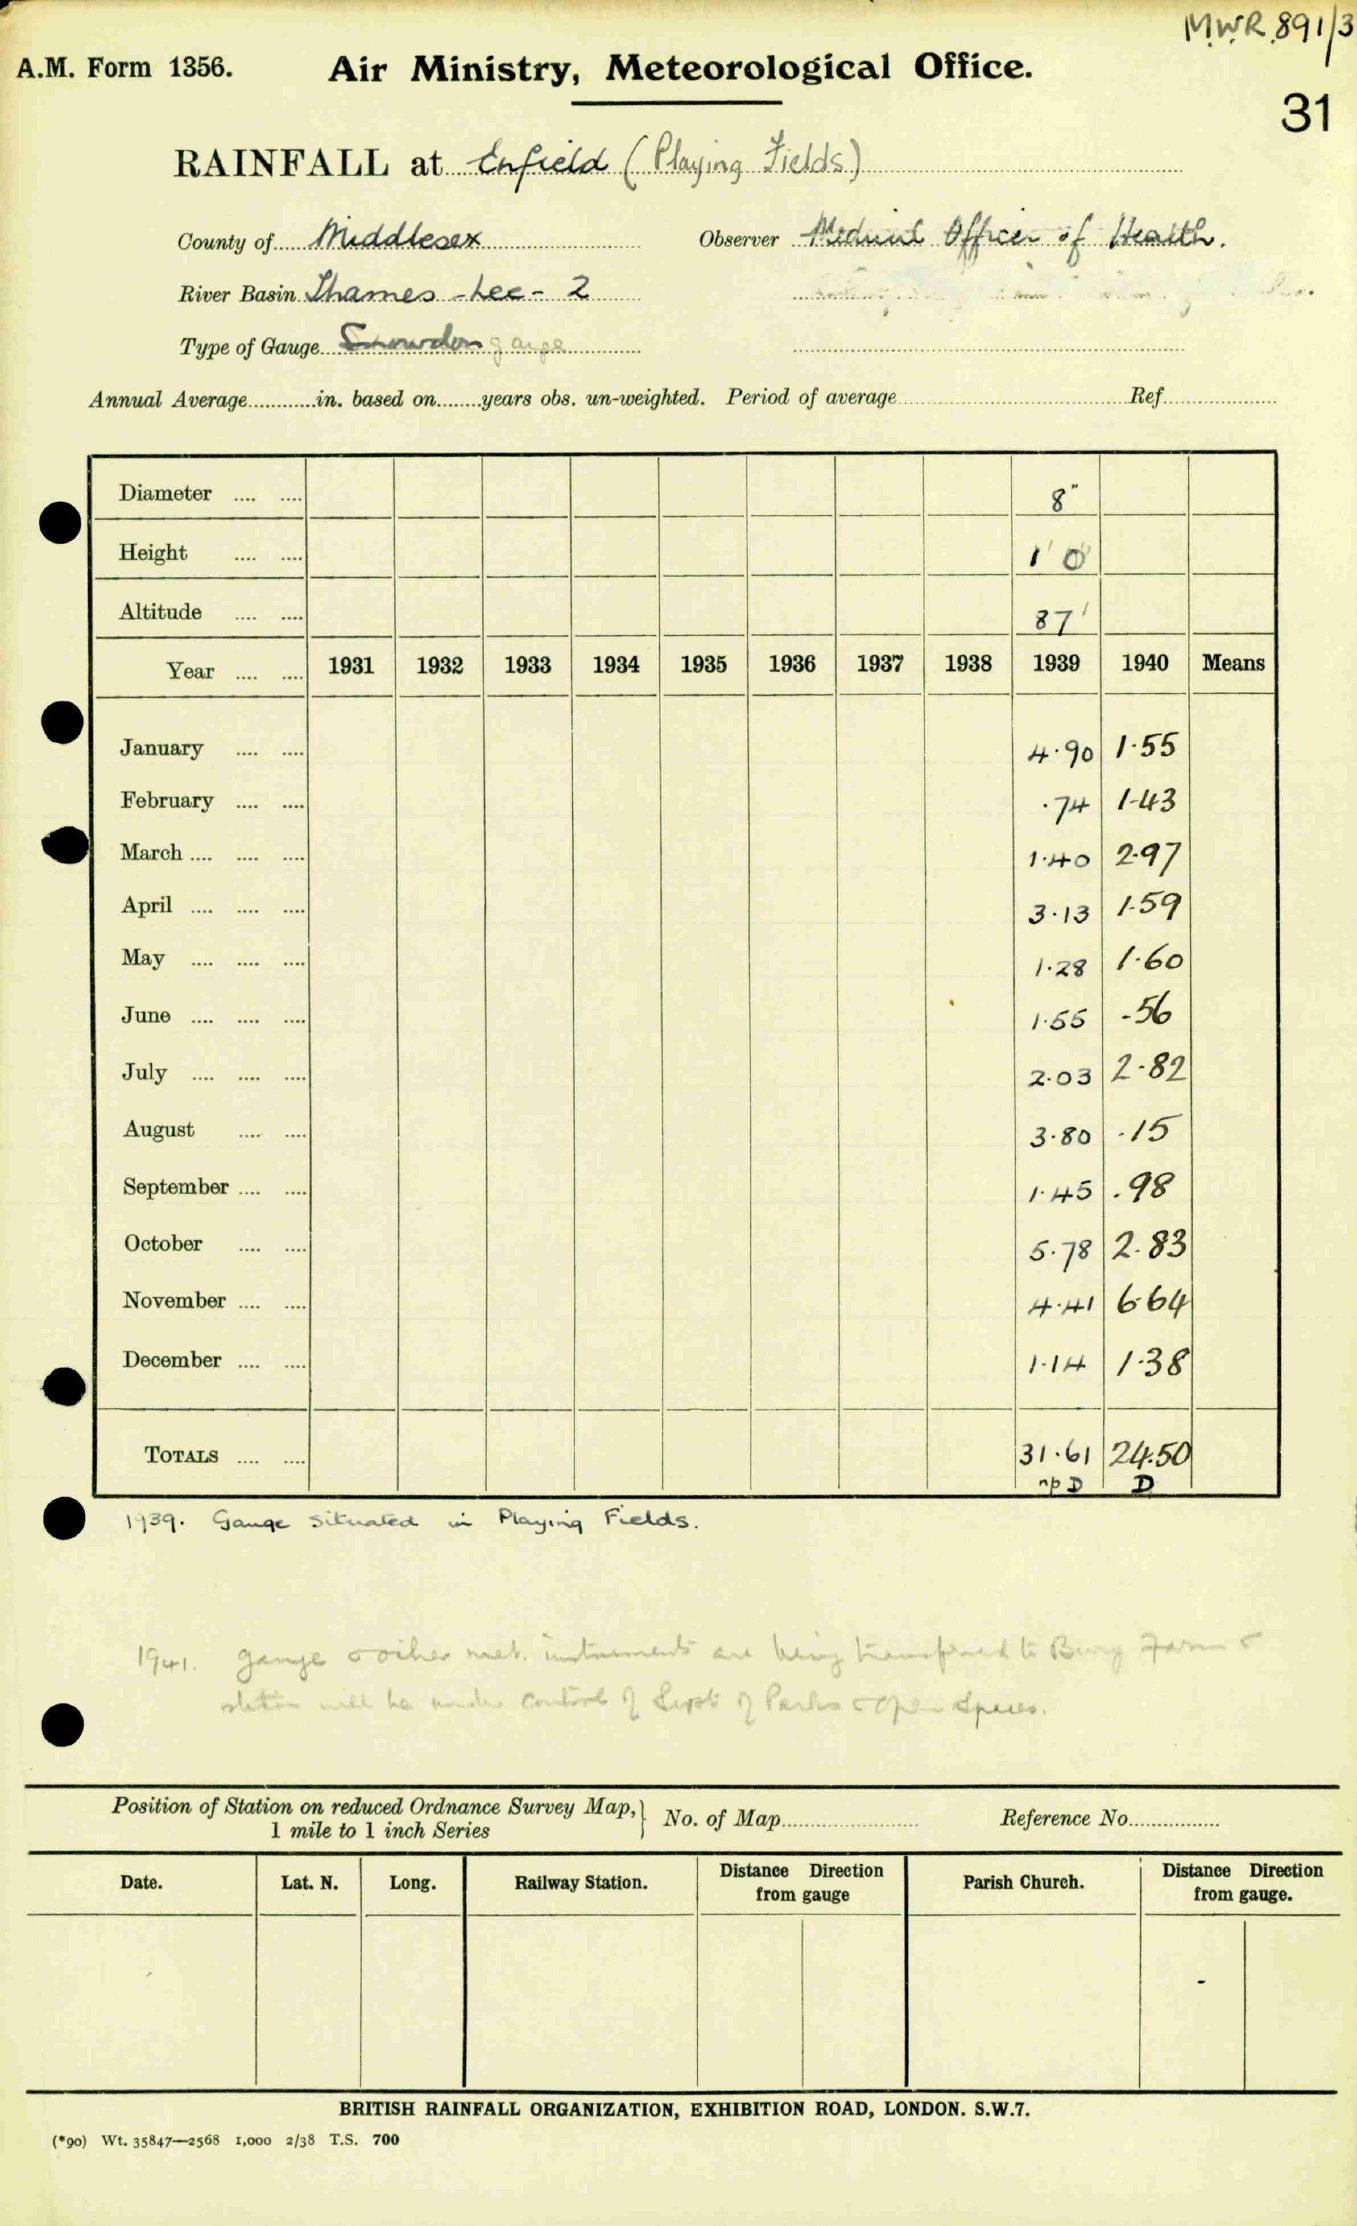 M.W.R. 891/3
A.M. Form 1356. Air Ministry, Meteorological Office.
31
RAINFALL at Enfield (Playing Fields)
County of Middlesex Observer Medical Officer of Health.
River Basin Thames - Lee - 2
Type of Gauge Snowdon gauge
Annual Average in. based on years obs. un-weighted. Period of average Ref
Diameter 8"
Height 1' 0"
Altitude 87'
Year 1931 1932 1933 1934 1935 1936 1937 1938 1939 1940 Means
January 4.90 1.55
February .74 1.43
March 1.40 2.97
April 3.13 1.59
May 1.28 1.60
June 1.55 .56
July 2.03 2.82
August 3.80 .15
September 1.45 .98
October 5.78 2.83
November 4.41 6.64
December 1.14 1.38
TOTALS 31.61 24.50
np D D
1939. Gauge situated in Playing Fields.
1941. Gauge & other met. instruments are being transferred to Bury Farm &
station will be under control of Supt of Parks & Open Spaces.
Position of Station on reduced Ordnance Survey Map, } No. of Map Reference No.
1 mile to 1 inch Series
Date. Lat. N. Long. Railway Station. Distance Direction from gauge Parish Church. Distance Direction from gauge.
BRITISH RAINFALL ORGANIZATION, EXHIBITION ROAD, LONDON. S.W.7.
(*90) Wt. 35847—2568 1,000 2/38 T.S. 700